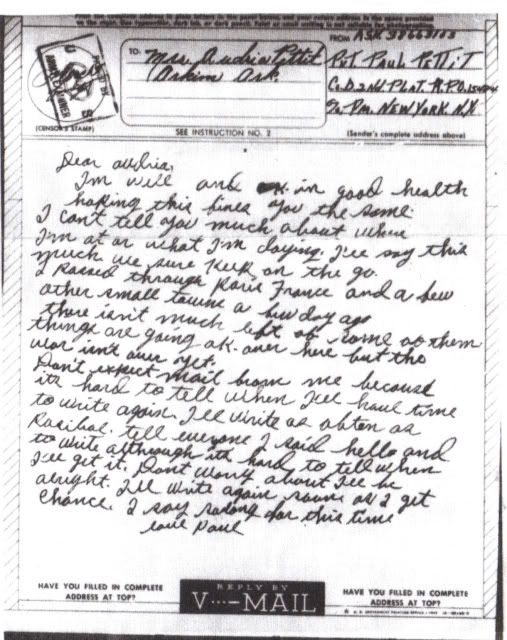 FROM ASN 38663103
TO: Mrs. Audria Pettit
Arkinu Ark.
Pvt Paul Pettit
Co. D 2nd Plat. A.P.O.
P.M. NEW YORK N.Y.
(CENSOR'S STAMP)
SEE INSTRUCTION NO. 2
(Sender's complete address above)
Dear audria,
I'm will and ok. in good health
hoping this fines you the same.
I can't tell you much about wher
I'm at or what I'm doying. I've say this
much we sure keep on the go.
I Passed through Paris France and a few
other small towns a few day ago
there isn't much left of some of them
things are going ok. over here but the
war isn't over yet.
Don't expect mail from me because
its hard to tell when I'll have time
to write again. I'll write as often as
Posibal. tell everyone I said hello and
to write although its hard to tell when
I'll get it. Don't worry about I'll be
alright. I'll write again soon as I get
chance. I say solong for this time
love Paul
HAVE YOU FILLED IN COMPLETE
ADDRESS AT TOP?
REPLY BY
V···—MAIL
HAVE YOU FILLED IN COMPLETE
ADDRESS AT TOP?